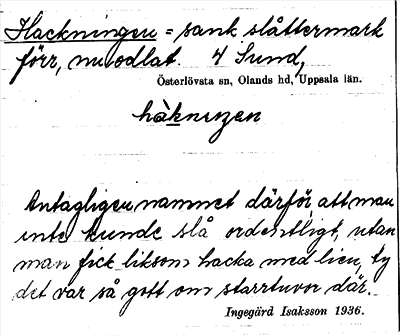 Hackningen = sank slåttermark
förr, nu odlat. 4 Sund,
Österlövsta sn, Olands hd, Uppsala län.
hàknıŋen
Antagligen namnet därför att man
inte kunde slå ordentligt, utan
man fick liksom hacka med lien, ty
det var så gott om starrtuvor där.
Ingegärd Isaksson 1936.